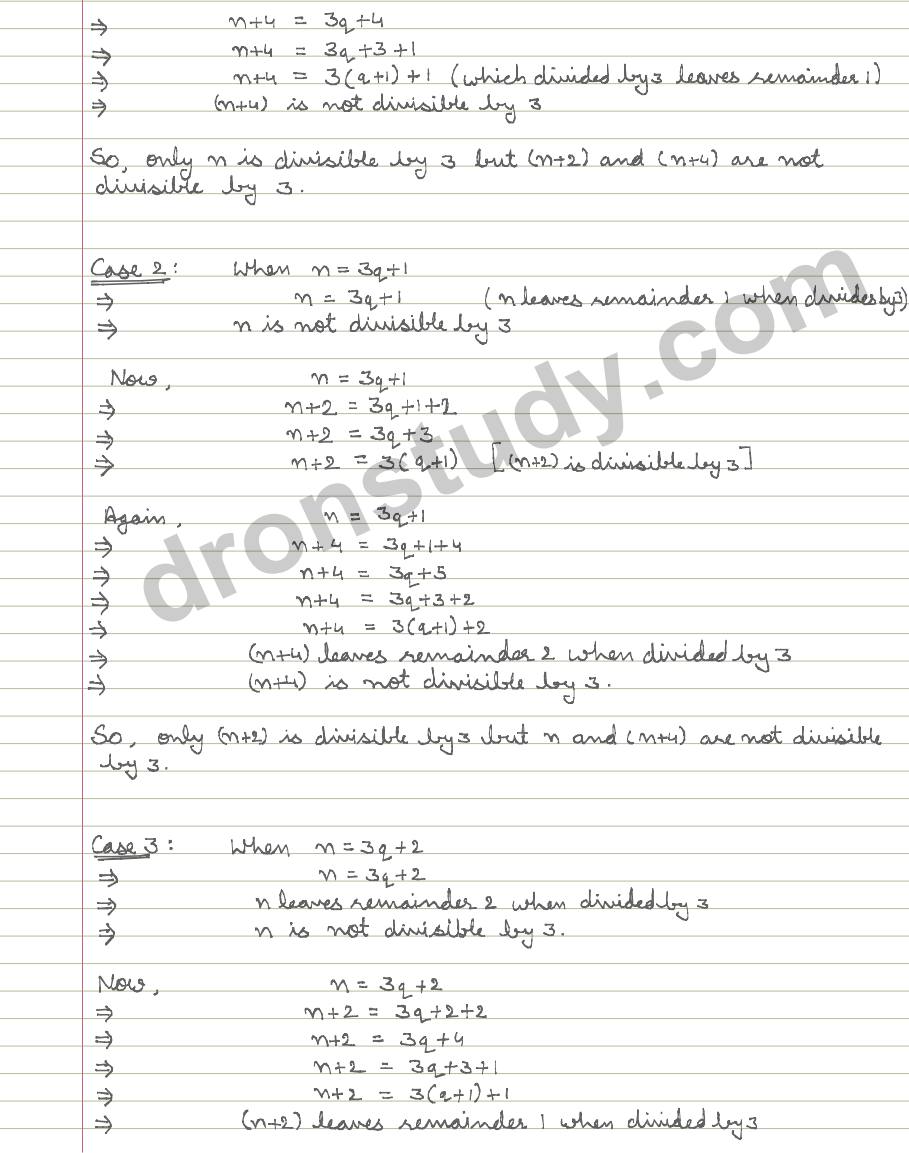 ⇒ n+4 = 3q+4
⇒ n+4 = 3q+3+1
⇒ n+4 = 3(q+1)+1 (which divided by 3 leaves remainder 1)
⇒ (n+4) is not divisible by 3
So, only n is divisible by 3 but (n+2) and (n+4) are not
divisible by 3.
Case 2: When n = 3q+1
⇒ n = 3q+1 (n leaves remainder 1 when divides by 3)
⇒ n is not divisible by 3
Now, n = 3q+1
⇒ n+2 = 3q+1+2
⇒ n+2 = 3q+3
⇒ n+2 = 3(q+1) [(n+2) is divisible by 3]
Again, n = 3q+1
⇒ n+4 = 3q+1+4
⇒ n+4 = 3q+5
⇒ n+4 = 3q+3+2
⇒ n+4 = 3(q+1)+2
⇒ (n+4) leaves remainder 2 when divided by 3
⇒ (n+4) is not divisible by 3.
So, only (n+2) is divisible by 3 but n and (n+4) are not divisible
by 3.
Case 3: When n = 3q+2
⇒ n = 3q+2
⇒ n leaves remainder 2 when divided by 3
⇒ n is not divisible by 3.
Now, n = 3q+2
⇒ n+2 = 3q+2+2
⇒ n+2 = 3q+4
⇒ n+2 = 3q+3+1
⇒ n+2 = 3(q+1)+1
⇒ (n+2) leaves remainder 1 when divided by 3
dronstudy.com